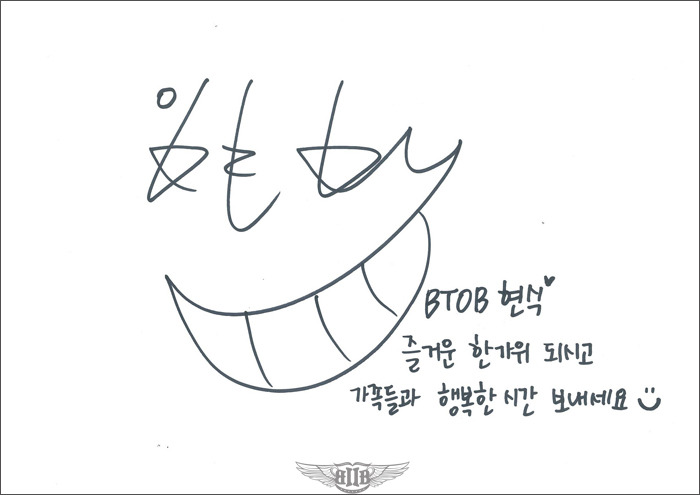 BTOB 현식♥
즐거운 한가위 되시고
가족들과 행복한 시간 보내세요 :)
BTOB